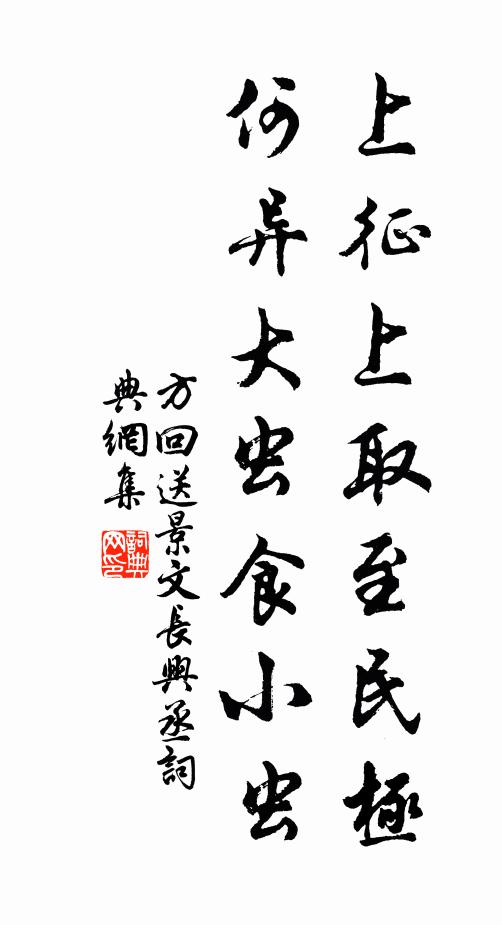 上征上取至民極
何异大虫食小虫
方回送景文長興丞詞
典網集
詞典
网印